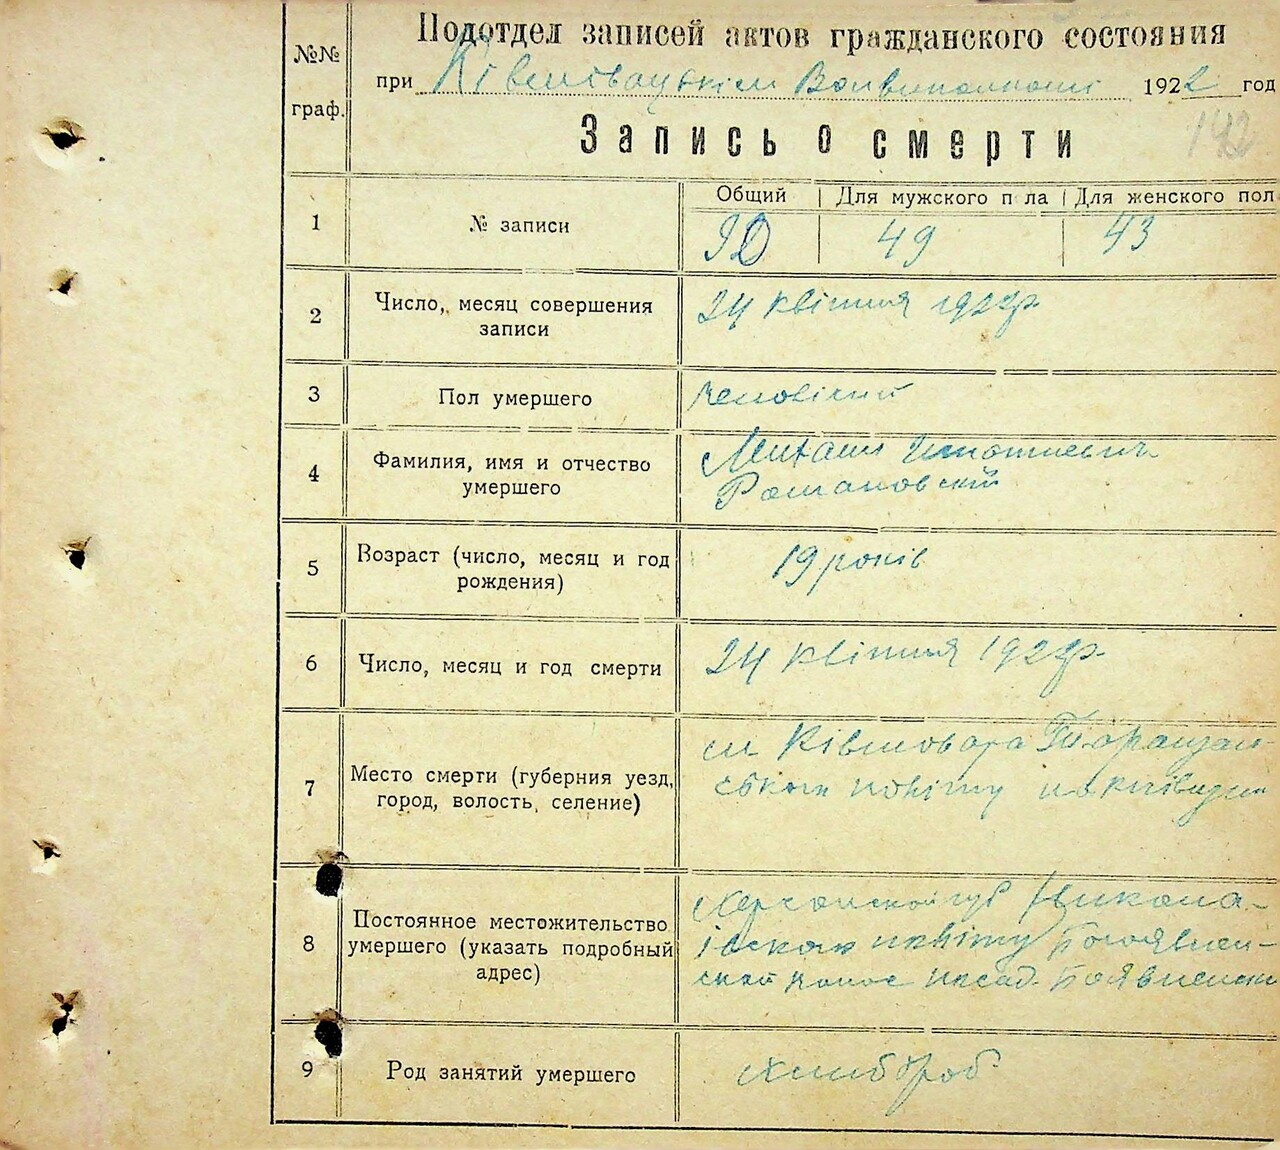 Подотдел записей актов гражданского состояния
№№
граф.
при Волвиконкомі 1922 год
142
Запись о смерти
Общий | Для мужского п ла | Для женского пол
1 № записи 92 49 43
2 Число, месяц совершения
записи
24 квітня 1922р.
3 Пол умершего чоловічий
4 Фамилия, имя и отчество
умершего
Михаил Игнатиевич
Романовский
5 Возраст (число, месяц и год
рождения)
19 років
6 Число, месяц и год смерти 24 квітня 1922р.
7 Место смерти (губерния уезд,
город, волость, селение)
м Ківшовата Таращан-
ського повіту на Київщині
8 Постоянное местожительство
умершего (указать подробный
адрес)
Херсонской губ Никола-
івского повіту Богоявлен-
ской волос посад
9 Род занятий умершего хлібороб